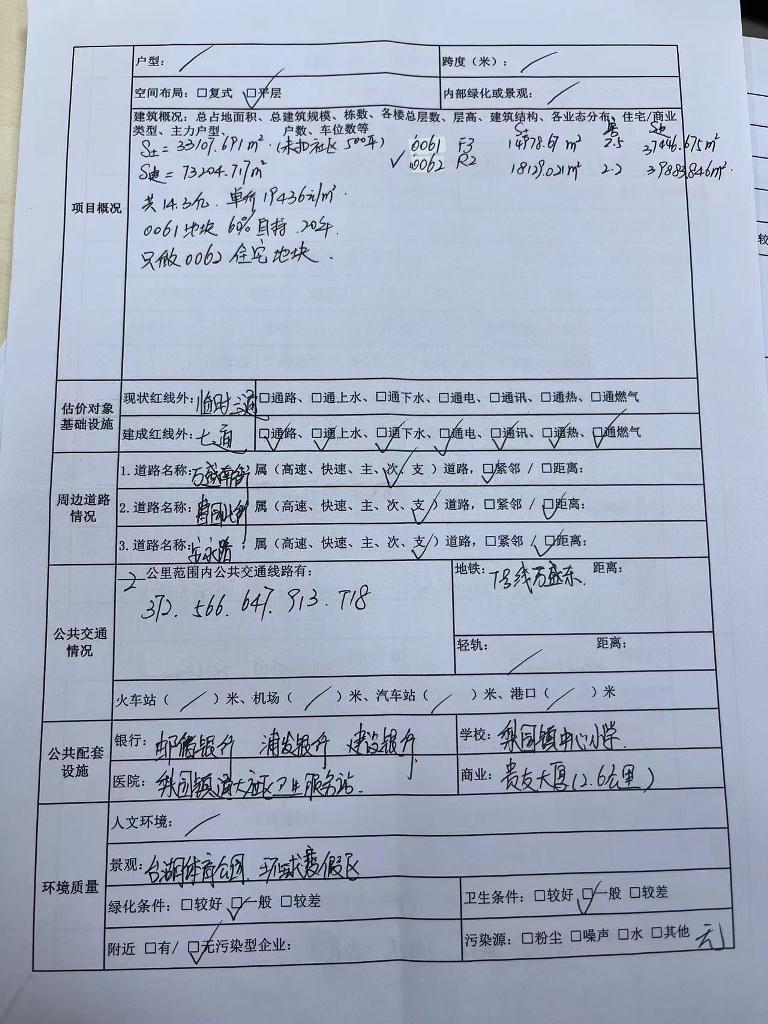 户型： 跨度（米）：
空间布局：□复式 □平层 内部绿化或景观：
项目概况
建筑概况：总占地面积、总建筑规模、栋数、各楼总层数、层高、建筑结构、各业态分布、住宅/商业
类型、主力户型、 户数、车位数等
S土 = 33107.691m². (未扣社区500年) 0061 F3 14978.67 m² 2.5 37446.675m²
S建 = 73204.717m² ✓ 0062 R2 18129.021m² 2.2 39883.846m².
共14.3亿. 单价19436元/m².
0061地块 60%自持. 20年.
只做0062住宅地块.
估价对象
基础设施
现状红线外：临时三通 □通路、□通上水、□通下水、□通电、□通讯、□通热、□通燃气
建成红线外：七通 □通路、□通上水、□通下水、□通电、□通讯、□通热、□通燃气
周边道路
情况
1. 道路名称：万盛南街 属（高速、快速、主、次、支）道路，□紧邻 / □距离：
2. 道路名称： 属（高速、快速、主、次、支）道路，□紧邻 / □距离：
3. 道路名称： 属（高速、快速、主、次、支）道路，□紧邻 / □距离：
公共交通
情况
2 公里范围内公共交通线路有： 地铁：7号线万盛东. 距离：
372. 566. 647. 913. T18
轻轨： 距离：
火车站（ ）米、机场（ ）米、汽车站（ ）米、港口（ ）米
公共配套
设施
银行：邮储银行 浦发银行 建设银行 学校：梨园镇中心小学.
医院：梨园镇 社区卫生服务站. 商业：贵友大厦(2.6公里)
环境质量
人文环境：
景观：台湖体育公园. 环球度假区
绿化条件：□较好 □一般 □较差 卫生条件：□较好 □一般 □较差
附近 □有/ □无污染型企业： 污染源：□粉尘 □噪声 □水 □其他 无
较